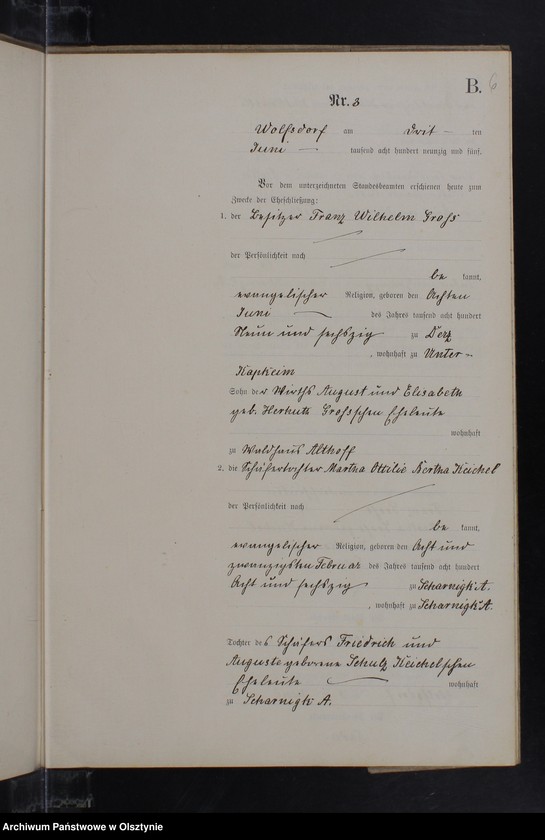 B. 6
Nr. 3
Wolfsdorf am Drit- ten
Juni — tausend acht hundert neunzig und fünf.
Vor dem unterzeichneten Standesbeamten erschienen heute zum
Zwecke der Eheschließung:
1. der Besitzer Franz Wilhelm Grohs
der Persönlichkeit nach
be kannt,
evangelischer Religion, geboren den Achten
Juni — des Jahres tausend acht hundert
Neun und sechszig zu Derz
, wohnhaft zu Unter-
Kapkeim
Sohn der Wirths August und Elisabeth
geb. Grohsschen Eheleute
wohnhaft
zu Waldhaus Althoff
2. die Schäfertochter Martha Ottilie Bertha Keichel
der Persönlichkeit nach
be kannt,
evangelischer Religion, geboren den Acht und
zwanzigsten Februar des Jahres tausend acht hundert
Acht und sechszig zu Scharnigk A.
, wohnhaft zu Scharnigk A.
Tochter des Schäfers Friedrich und
Auguste geborene Schulz Keichelschen
Eheleute — wohnhaft
zu Scharnigk A.
Archiwum Państwowe w Olsztynie